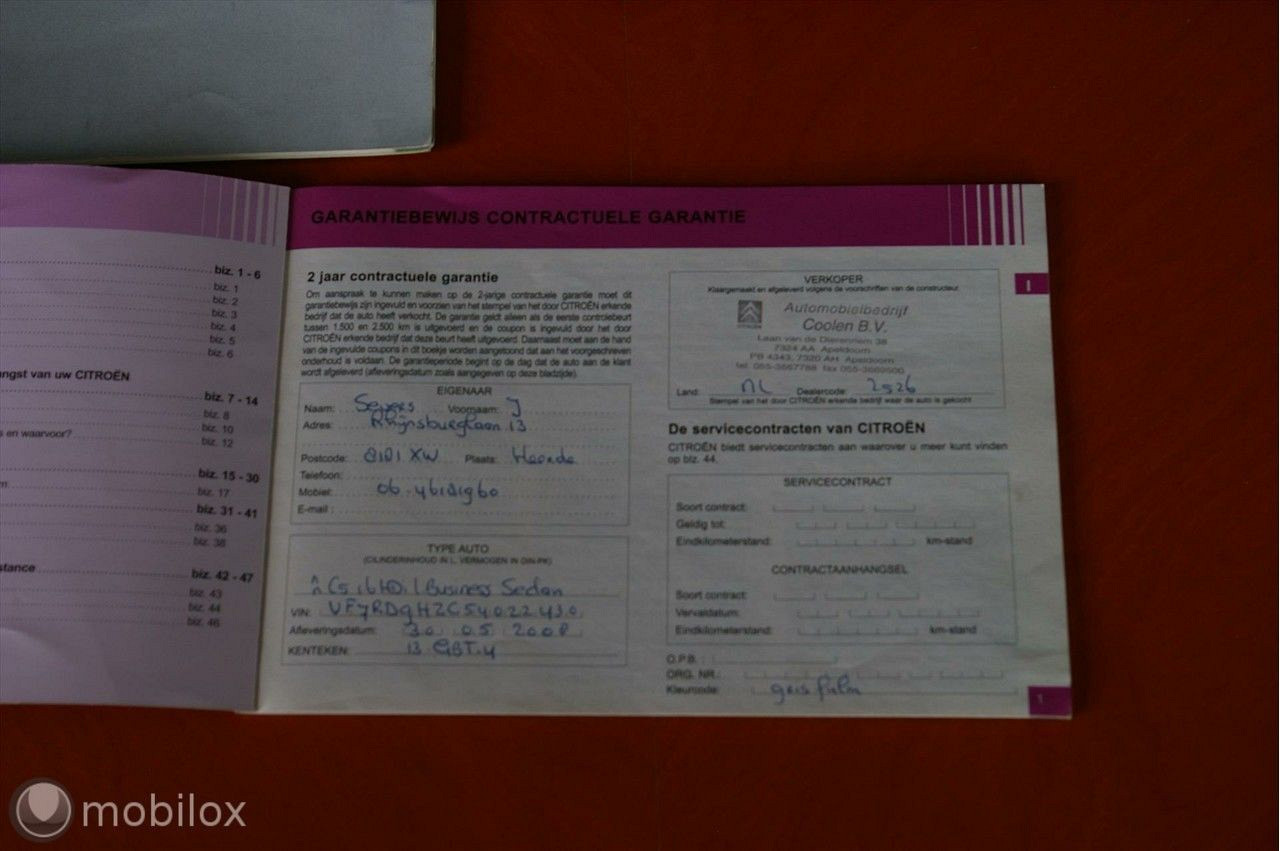 biz. 1 - 6
biz. 1
biz. 2
biz. 3
biz. 4
biz. 5
biz. 6
ngst van uw CITROËN
biz. 7 - 14
biz. 8
s en waarvoor? biz. 10
biz. 12
biz. 15 - 30
biz. 17
biz. 31 - 41
biz. 36
biz. 38
stance biz. 42 - 47
biz. 43
biz. 44
biz. 46
GARANTIEBEWIJS CONTRACTUELE GARANTIE
2 jaar contractuele garantie
Om aanspraak te kunnen maken op de 2-jarige contractuele garantie moet dit
garantiebewijs zijn ingevuld en voorzien van het stempel van het door CITROËN erkende
bedrijf dat de auto heeft verkocht. De garantie geldt alleen als de eerste controlebeurt
tussen 1.500 en 2.500 km is uitgevoerd en de coupon is ingevuld door het door
CITROËN erkende bedrijf dat deze beurt heeft uitgevoerd. Daarnaast moet aan de hand
van de ingevulde coupons in dit boekje worden aangetoond dat aan het voorgeschreven
onderhoud is voldaan. De garantieperiode begint op de dag dat de auto aan de klant
wordt afgeleverd (afleveringsdatum zoals aangegeven op deze bladzijde).
EIGENAAR
Naam: Segers Voornaam: J
Adres: Rhijnsburglaan 13
Postcode: 8181 XW Plaats: Heerde
Telefoon:
Mobiel: 06-
E-mail :
TYPE AUTO
(CILINDERINHOUD IN L, VERMOGEN IN DIN-PK)
C5 16 HDi Business Sedan
VIN: VF7RD9HZC54022430
Afleveringsdatum: 30 05 2008
KENTEKEN: 13 GBT-4
VERKOPER
Klaargemaakt en afgeleverd volgens de voorschriften van de constructeur.
CITROËN
Automobielbedrijf
Coolen B.V.
Laan van de Dierenriem 38
7324 AA Apeldoorn
PB 4343, 7320 AH Apeldoorn
tel. 055-3667788 fax 055-3669500
Land: NL Dealercode: 2526
Stempel van het door CITROËN erkende bedrijf waar de auto is gekocht
De servicecontracten van CITROËN
CITROËN biedt servicecontracten aan waarover u meer kunt vinden
op blz. 44.
SERVICECONTRACT
Soort contract:
Geldig tot:
Eindkilometerstand: km-stand
CONTRACTAANHANGSEL
Soort contract:
Vervaldatum:
Eindkilometerstand: km-stand
O.P.B. :
ORG. NR.:
Kleurcode: gris
I
1
mobilox